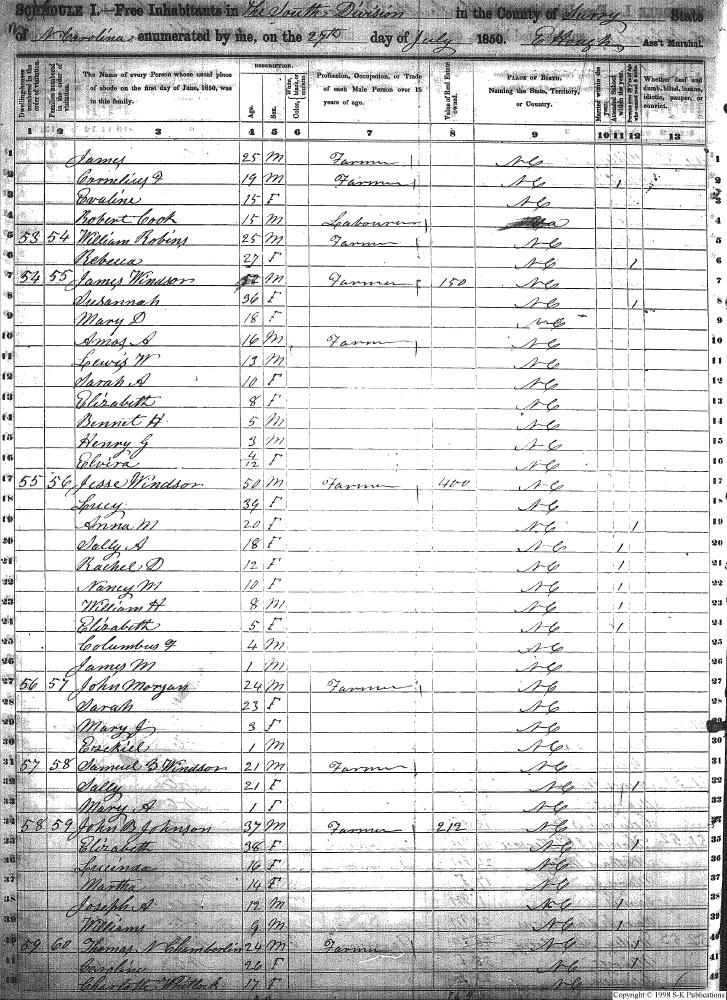 SCHEDULE I.—Free Inhabitants in The South Division in the County of Surry State
of N Carolina enumerated by me, on the 29th day of July 1850. E Hough Ass't Marshal.
Dwelling-houses numbered in the order of visitation. Families numbered in the order of visitation. The Name of every Person whose usual place of abode on the first day of June, 1850, was in this family. DESCRIPTION. Age. Sex. Color, White, black, or mulatto. Profession, Occupation, or Trade of each Male Person over 15 years of age. Value of Real Estate owned. PLACE OF BIRTH, Naming the State, Territory, or Country. Married within the year. Attended School within the year. Whether deaf and dumb, blind, insane, idiotic, pauper, or convict.
1 2 3 4 5 6 7 8 9 10 11 12 13
1 James 25 M Farmer NC 1
2 Cornelius F 19 M Farmer NC 1 2
3 Evaline 15 F NC 3
4 Robert Cook 15 M Labourer 4
5 53 54 William Robins 25 M Farmer NC 5
6 Rebecca 27 F NC 1 6
7 54 55 James Windson M Farmer 150 NC 7
8 Susannah 36 F NC 1 8
9 Mary D 18 F NC 9
10 Amos A 16 M Farmer NC 10
11 Lewis W 13 M NC 11
12 Sarah A 10 F NC 12
13 Elizabeth 8 F NC 13
14 Bennet H 5 M NC 14
15 Henry G 3 M NC 15
16 Elvira 4/12 F NC 16
17 55 56 Jesse Windson 50 M Farmer 400 NC 17
18 Lucy 39 F NC 18
19 Anna M 20 F NC 1 19
20 Sally A 18 F NC 1 20
21 Rachel D 12 F NC 1 21
22 Nancy M 10 F NC 1 22
23 William H 8 M NC 1 23
24 Elizabeth 5 F NC 1 24
25 Columbus F 4 M NC 25
26 James M 1 M NC 26
27 56 57 John Morgan 24 M Farmer NC 27
28 Sarah 23 F NC 28
29 Mary J 3 F NC
30 Ezekiel 1 M NC 30
31 57 58 Samuel B Windson 21 M Farmer NC 31
32 Sally 21 F NC 1 32
33 Mary A 1 F NC 33
34 58 59 John B Johnson 37 M Farmer 212 NC 34
35 Elizabeth 38 F NC 1 35
36 Lucinda 16 F NC 36
37 Martha 14 F NC 37
38 Joseph A 12 M NC 1 38
39 William 9 M NC 1 39
40 59 60 Thomas N Chamberlin 24 M Farmer NC 1 40
41 Caroline 26 F NC 1 41
42 Charlotte Whitlock 17 F NC 42
Copyright © 1998 S-K Publications